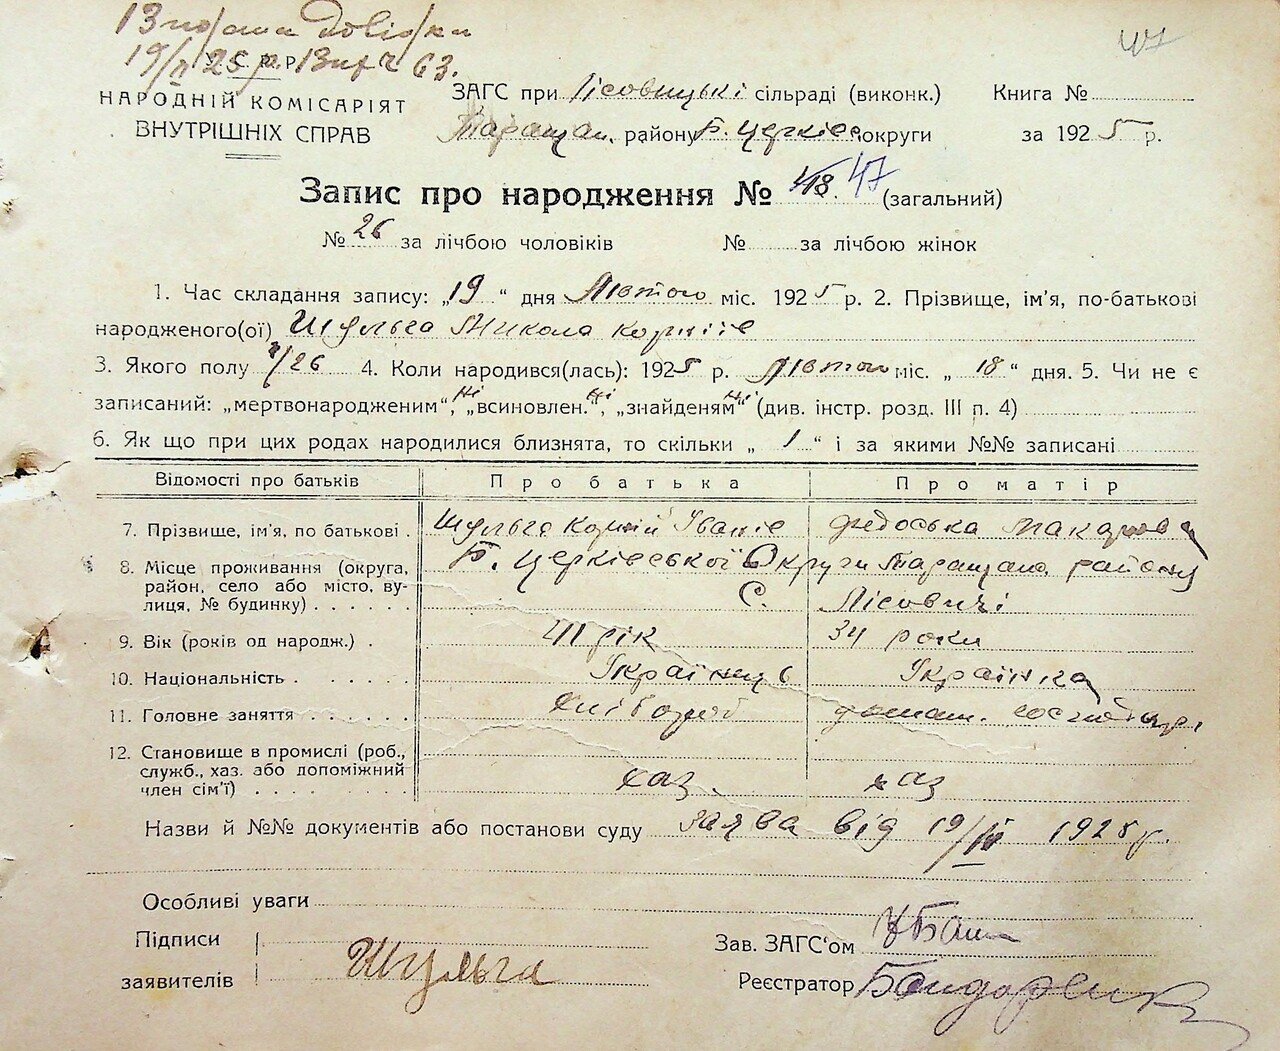 407
19/II 25 р.
У.С.Р.Р.
НАРОДНІЙ КОМІСАРІЯТ
ВНУТРІШНІХ СПРАВ
ЗАГС при Лісовицькі сільраді (виконк.) Книга №
Таращан. району Б. Церківс округи за 1925 р.
Запис про народження № 48. 47 (загальний)
№ 26 за лічбою чоловіків № за лічбою жінок
1. Час складання запису: „19“ дня Лютого міс. 1925 р. 2. Прізвище, ім'я, по-батькові
народженого(ої) Шульга Микола Корніїв
3. Якого полу ч/26 4. Коли народився(лась): 1925 р. Лютого міс. „18“ дня. 5. Чи не є
записаний: „мертвонародженим“, ні „всиновлен.“, ні „знайденям“ ні (див. інстр. розд. III п. 4)
6. Як що при цих родах народилися близнята, то скільки „1“ і за якими №№ записані
Відомості про батьків Про батька Про матір
7. Прізвище, ім'я, по батькові . Шульга Корній Іванів Федоська Макарова
8. Місце проживання (округа, район, село або місто, вулиця, № будинку) . . . . . Б. Церківської Округи Таращан. району
С. Лісовичі
9. Вік (років од народж.) . 41 рік 34 роки
10. Національність . . . . . Українець Українка
11. Головне заняття . . . . . Хлібороб домаш. господар.
12. Становище в промислі (роб., служб., хаз. або допоміжний член сім'ї) . . . . . хаз. хаз
Назви й №№ документів або постанови суду заява від 19/II 1925 р.
Особливі уваги
Підписи
заявителів Шульга
Зав. ЗАГС'ом
Реєстратор Бондаренк